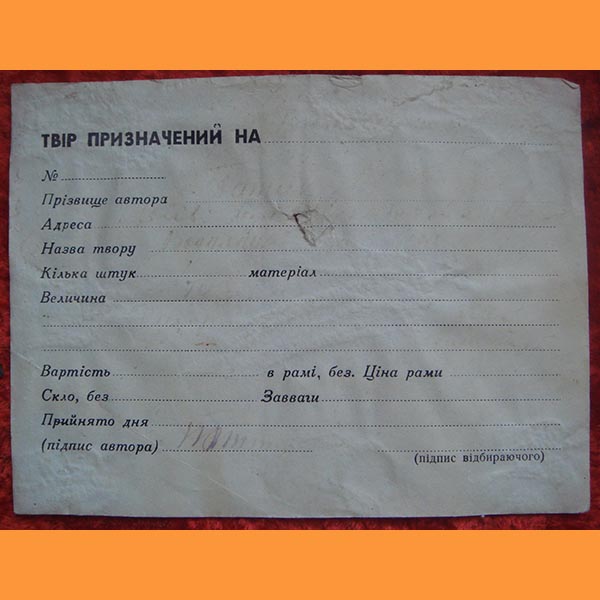 ТВІР ПРИЗНАЧЕНИЙ НА
№
Прізвище автора
Адреса
Назва твору
Кілька штук матеріал
Величина
Вартість в рамі, без. Ціна рами
Скло, без Завваги
Прийнято дня
(підпис автора)
(підпис відбираючого)